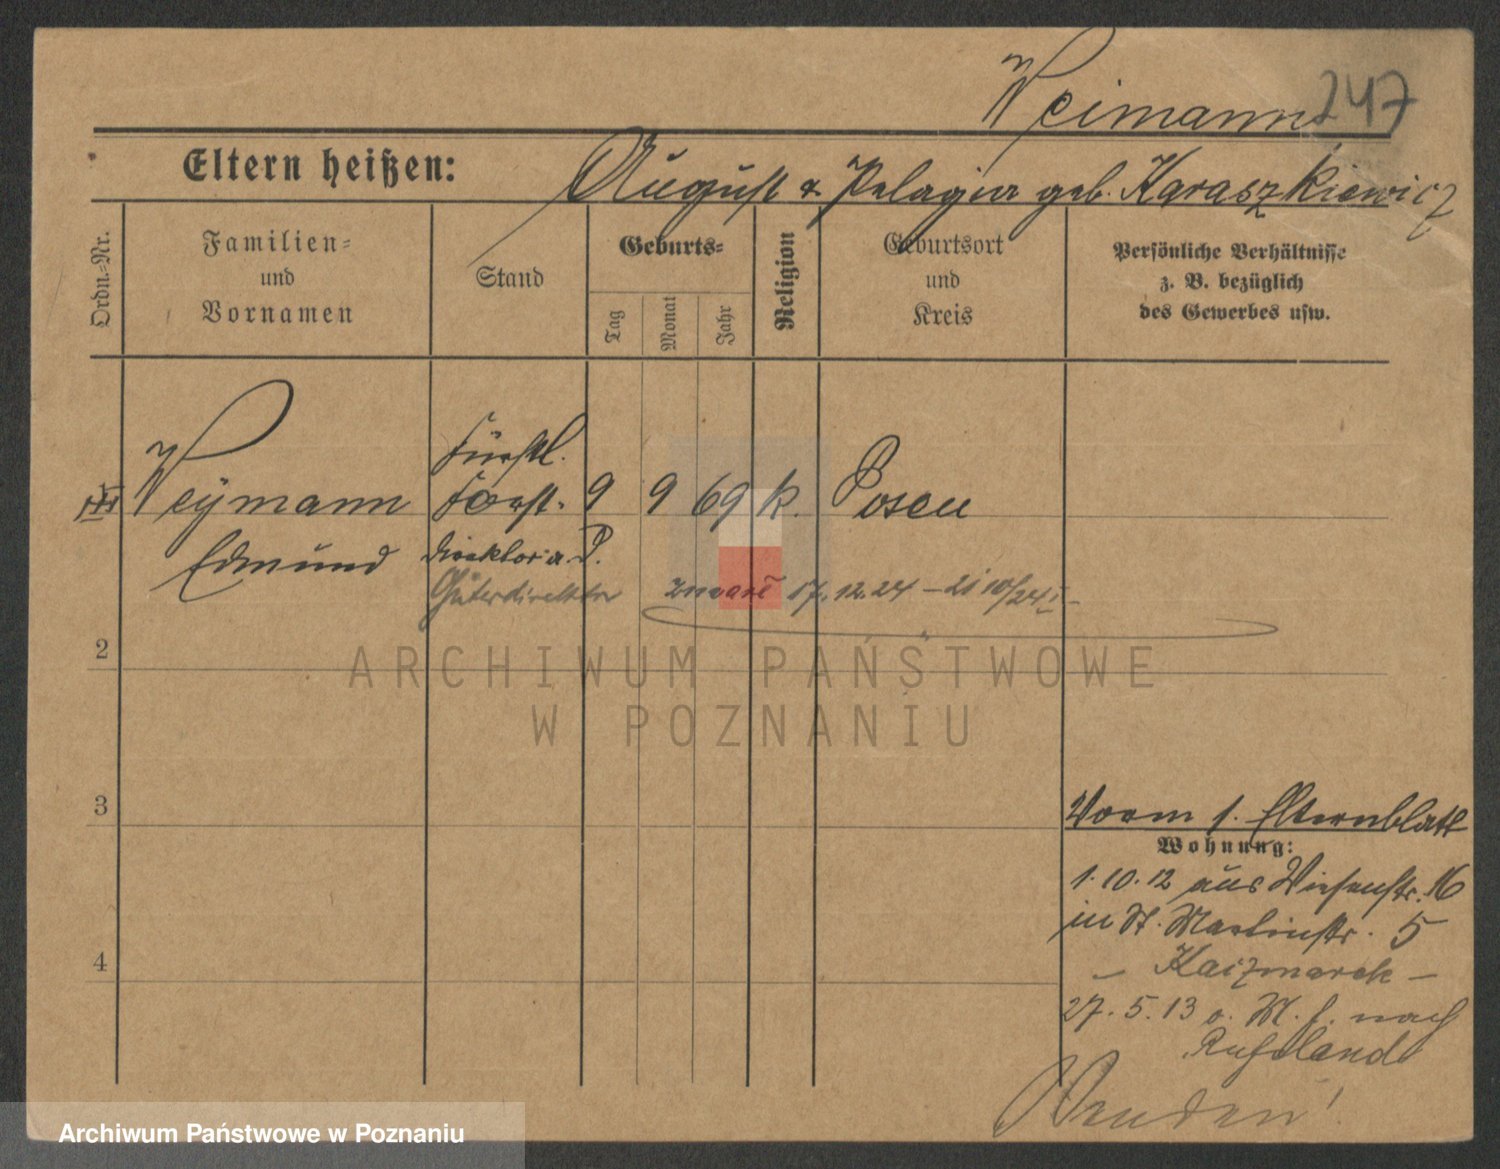 Weimann 247
Eltern heißen: August & Pelagia geb. Karaszkiewicz
Ordn.-Nr.
Familien-
und
Vornamen
Stand
Geburts-
Tag
Monat
Jahr
Religion
Geburtsort
und
Kreis
Persönliche Verhältnisse
z. B. bezüglich
des Gewerbes usw.
Weymann Fürstl. Forst- 9 9 69 k. Posen
Edmund direktor a. D.
Güterdirektor zmarł 17.12.24
2
ARCHIWUM PAŃSTWOWE
W POZNANIU
3
Vorm 1. Elternblatt
Wohnung:
1.10.12 aus Wiesenstr. 16
in St. Martinstr. 5
4
– Kaczmarek –
27.5.13 o. M. f. nach
Rußland
Wenden!
Archiwum Państwowe w Poznaniu